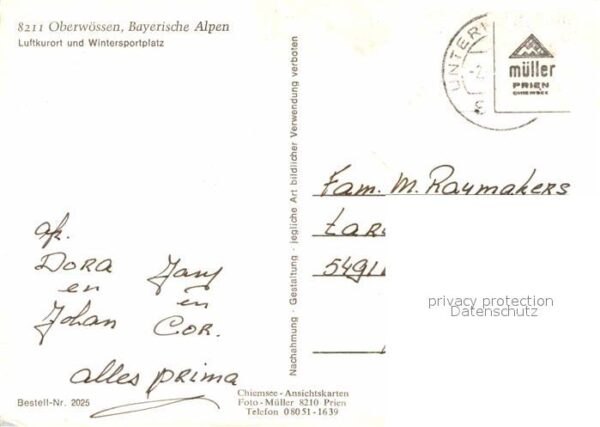 8211 Oberwössen, Bayerische Alpen
Luftkurort und Wintersportplatz
afz.
DORA
en
Johan
Jany
en
COR.
alles prima
Bestell-Nr. 2025
Nachahmung - Gestaltung - jegliche Art bildlicher Verwendung verboten
Chiemsee - Ansichtskarten
Foto - Müller 8210 Prien
Telefon 08051-1639
UNTER
müller
PRIEN
CHIEMSEE
Fam. M. Raymakers
Lar
5491
privacy protection
Datenschutz